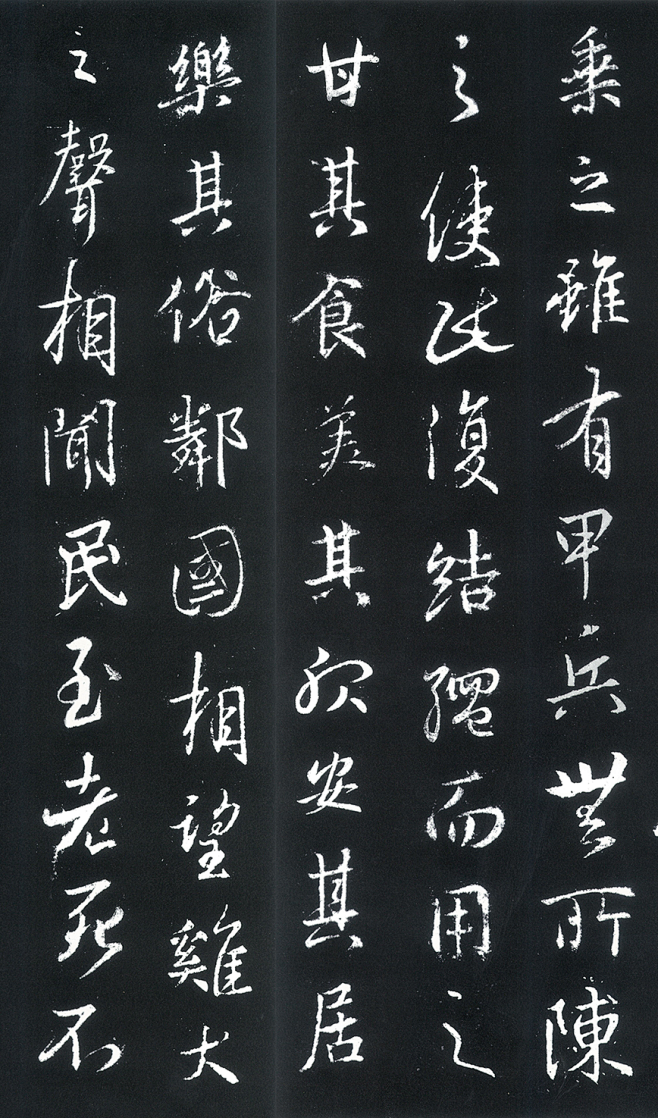 乘之雖有甲兵無所陳
之使民復結繩而用之
甘其食美其服安其居
樂其俗鄰國相望雞犬
之聲相聞民至老死不